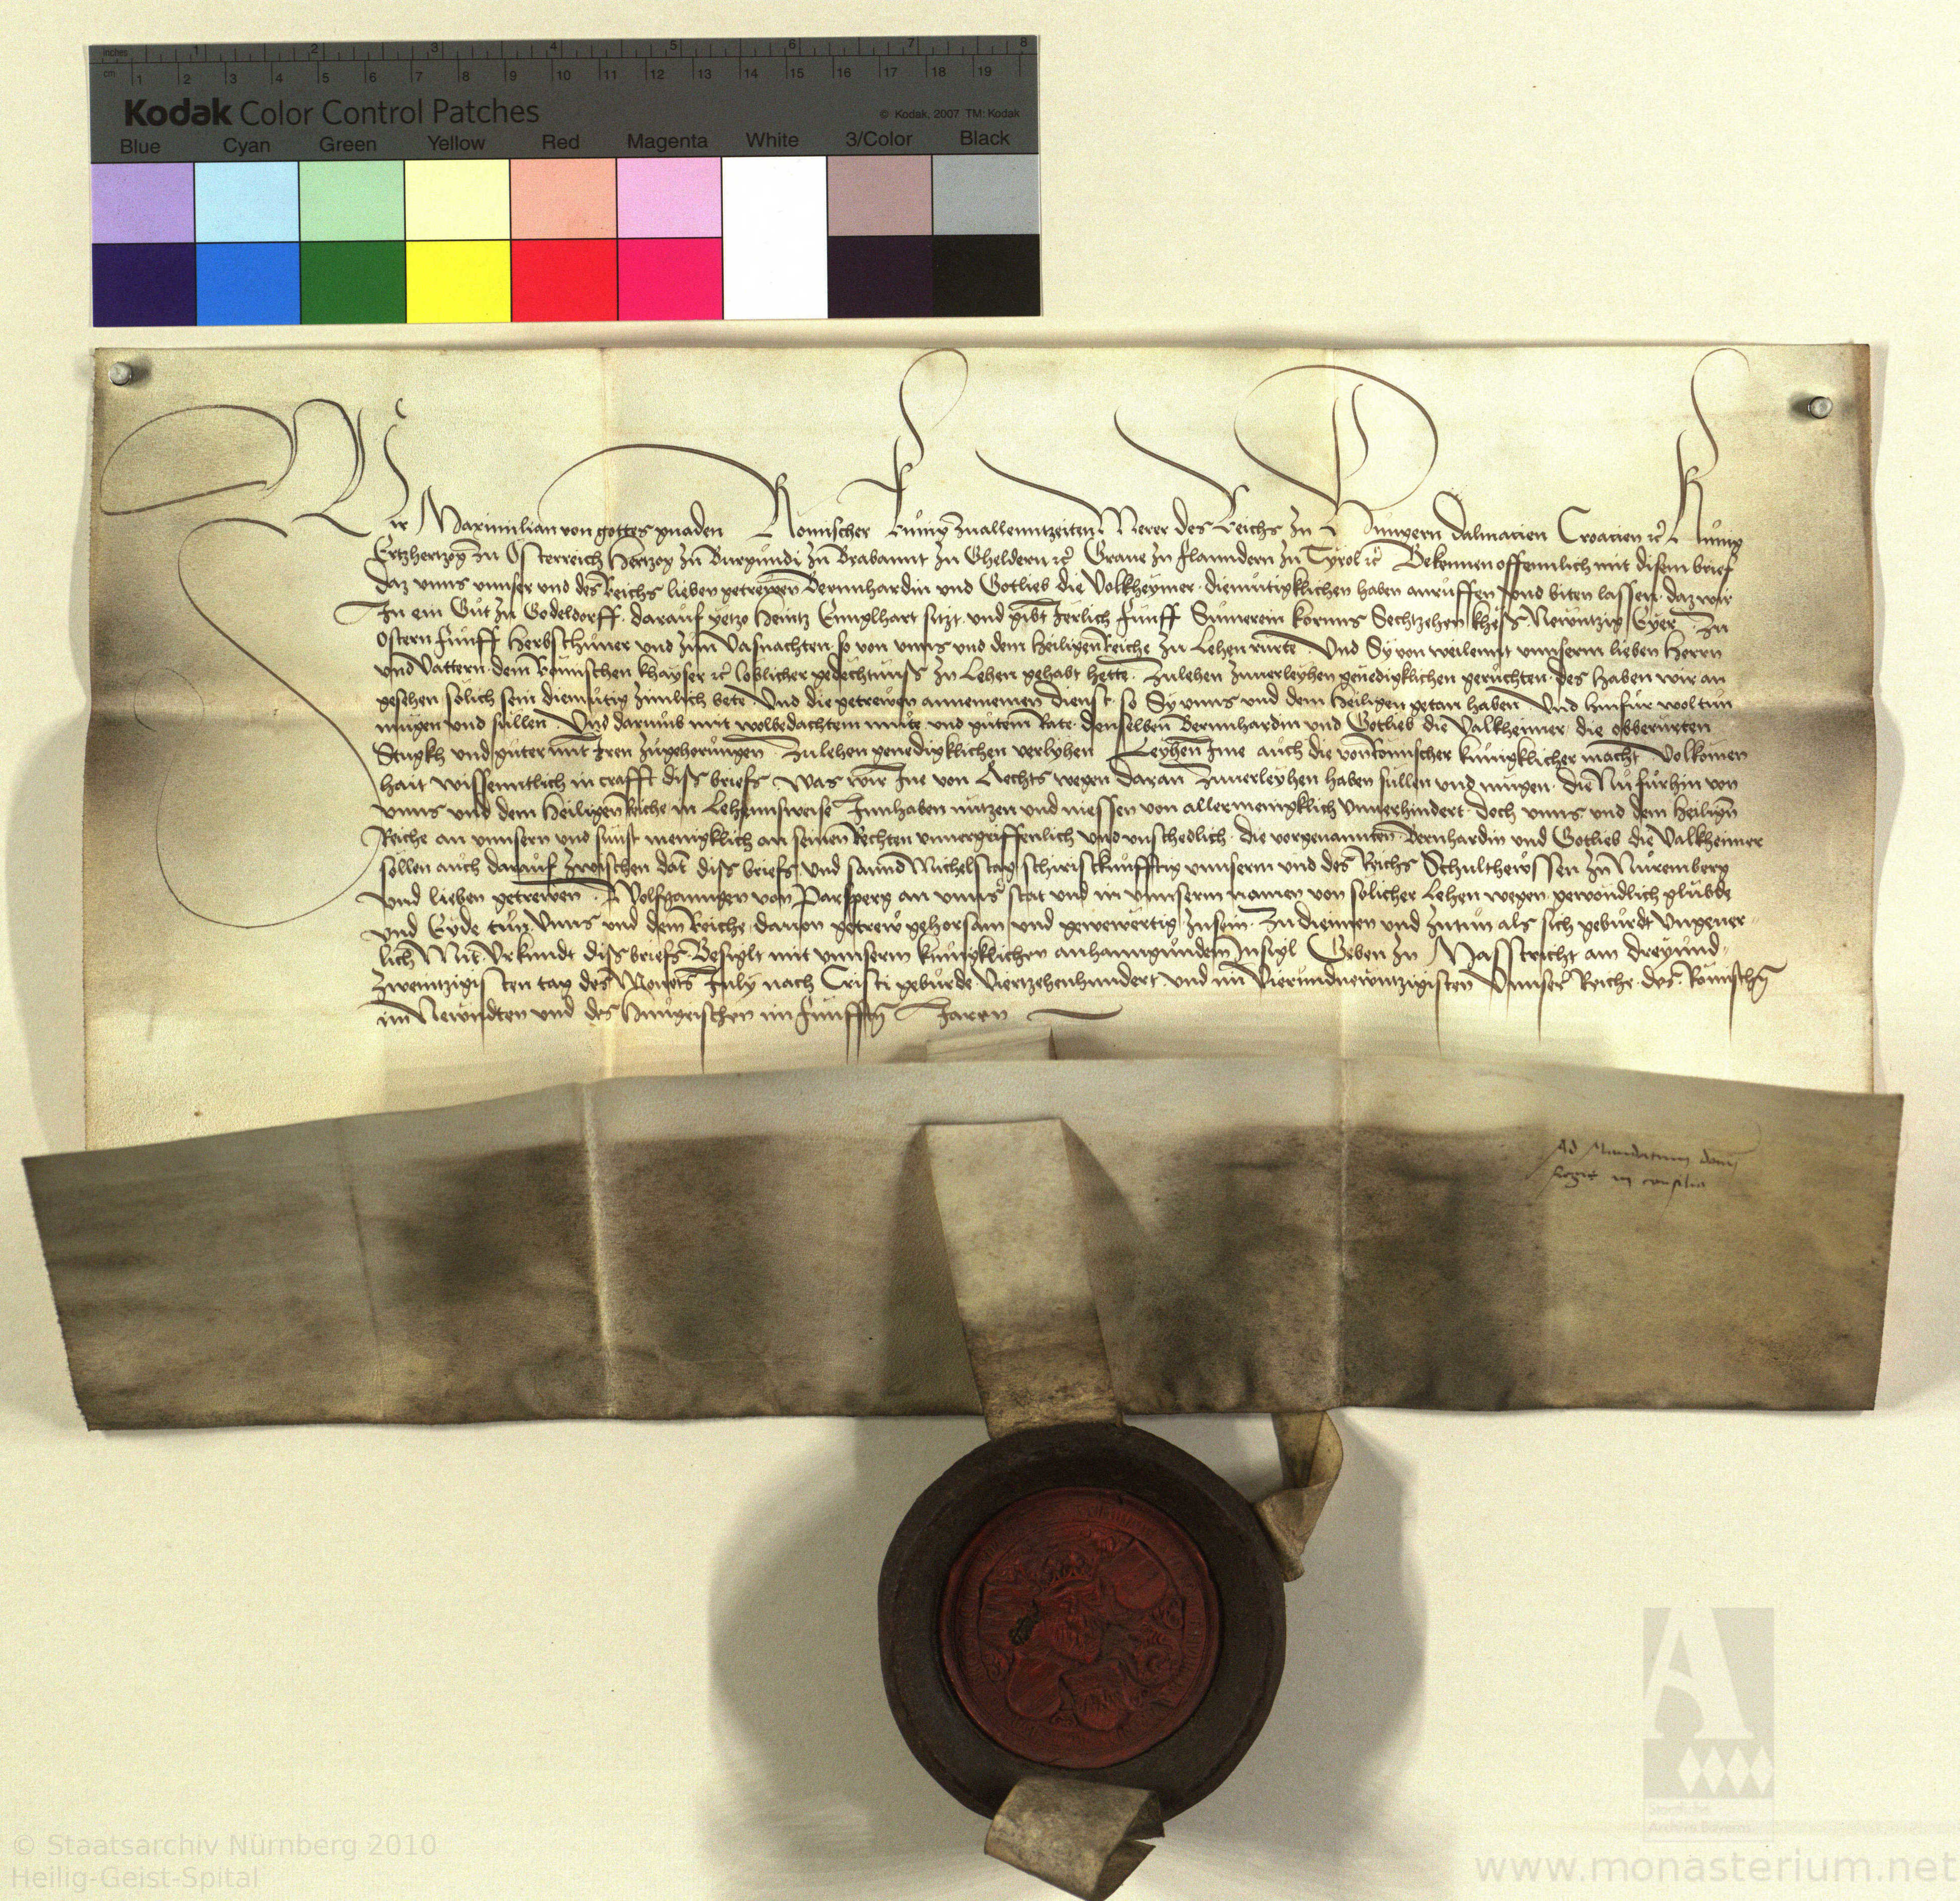 inches 1 2 3 4 5 6 7 8
cm 1 2 3 4 5 6 7 8 9 10 11 12 13 14 15 16 17 18 19
Kodak Color Control Patches © Kodak, 2007 TM: Kodak
Blue Cyan Green Yellow Red Magenta White 3/Color Black
Wir Maximilian von gottes gnaden Römischer Kunig zuallenntzeiten Merer des Reichs zu Hungern Dalmacien Croacien ꝛc̃ Kunig
Ertzhertzog zu Österreich Hertzog zu Burgundi zu Brabannt zu Gheldern ꝛc̃ Graue zu Flanndern zu Tyrol ꝛc̃ Bekennen offennlich mit disem brief
daz vnns vnnser vnd des Reichs lieben getrewen Bernnhardin vnd Gotlieb die Volkheymer diemutigklichen haben anruffen vnd biten lassen daz wir
In ein Gůt zu Godeldorff darauf yetzo Heintz Ennglhart sitzt vnd gibt Jerlich Funff Sumerein kornns Sechtzehen khes Newntzig Eyer zu
Ostern Funff herbsthuner vnd zu Vasnachten so von vnns vnd dem heiligen Reiche zu Lehen rurte Vnd Sy von weilennt vnnserm lieben herrn
vnd Vattern dem Römischen khayser ꝛc̃ loblicher gedechtnuss zu Lehen gehabt hette zulehen zuuerleyhen genedigklichen geruchten des haben wir an
gesehen solich sein diemutig zimlich bete Vnd die getrewen annemen dienst so Sy vnns vnd dem heiligen getan haben Vnd hinfur wol tun
mugen vnd sullen Vnd darumb mit wolbedachtem mute vnd gutem Rate denselben Bernnhardin vnd Gotlieb die Valkheimer die obberurten
Stugkh vnd guter mit Iren zugehorungen zulehen genedigklichen verlyhen Leyhen Ine auch die von Römischer kuniglicher macht Volkomen
hait wissenntlich in crafft diss briefs Was wir Ine von Rechts wegen daran zuuerleyhen haben sullen vnd mugen die Nu furhin von
vnns vnd dem heiligen Reiche in Lehennsweise Innhaben nutzen vnd niessen von allermenigklich vnuerhindert doch vnns vnd dem heiligen
Reiche an vnnsern vnd sunst menigklich an seinen Rechten vnuergriffenlich vnd vnschedlich die vorgenannten Bernhardin vnd Gotlieb die Valkheimer
sollen auch darauf zwischen dat diss briefs vnd sannd Michelstag schiristkunfftig vnnserm vnd des Reichs Schultheossen zu Nuremberg
vnd lieben getrewen Wolfganngen von Parsperg an vnns stat vnd in vnnserm namen von solicher Lehen wegen gewondlich glubde
vnd Eyde tun Vnns vnd dem Reiche dauon getrew gehorsam vnd gewertig zusein zu diennen vnd zutun als sich geburdt Vngeuer
lich Mit Vrkundt diss briefs Besiglt mit vnnserm kunigklichen anhanngunden Insigl Geben zu Masstricht am dreyund
zweintzigisten tag des Monets July nach Cristi geburde Viertzehenhundert vnd im Vierundnewntzigisten Vnnser Reiche des Römischen
im Newndten vnd des Hungrischen im Funfften Jaren
Ad Mandatum domini
Regis in consilio
© Staatsarchiv Nürnberg 2010
Heilig-Geist-Spital
www.monasterium.net